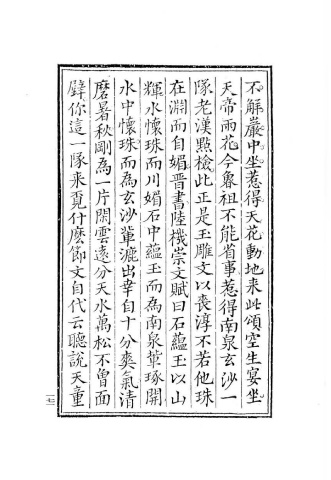 不解巖中坐惹得天花動地來此頌空生宴坐
天帝雨花今魯祖不能省事惹得南泉玄沙一
隊老漢點檢此正是玉雕文以喪淳不若他珠
在淵而自媚晉書陸機崇文賦曰石蘊玉以山
輝水懷珠而川媚石中蘊玉而為南泉輩琢開
水中懷珠而為玄沙輩漉出幸自十分爽氣清
磨暑秋剛為一片閑雲遠分天水萬松不曾面
壁你這一隊來覓什麽節文自代云聽說天童
一七